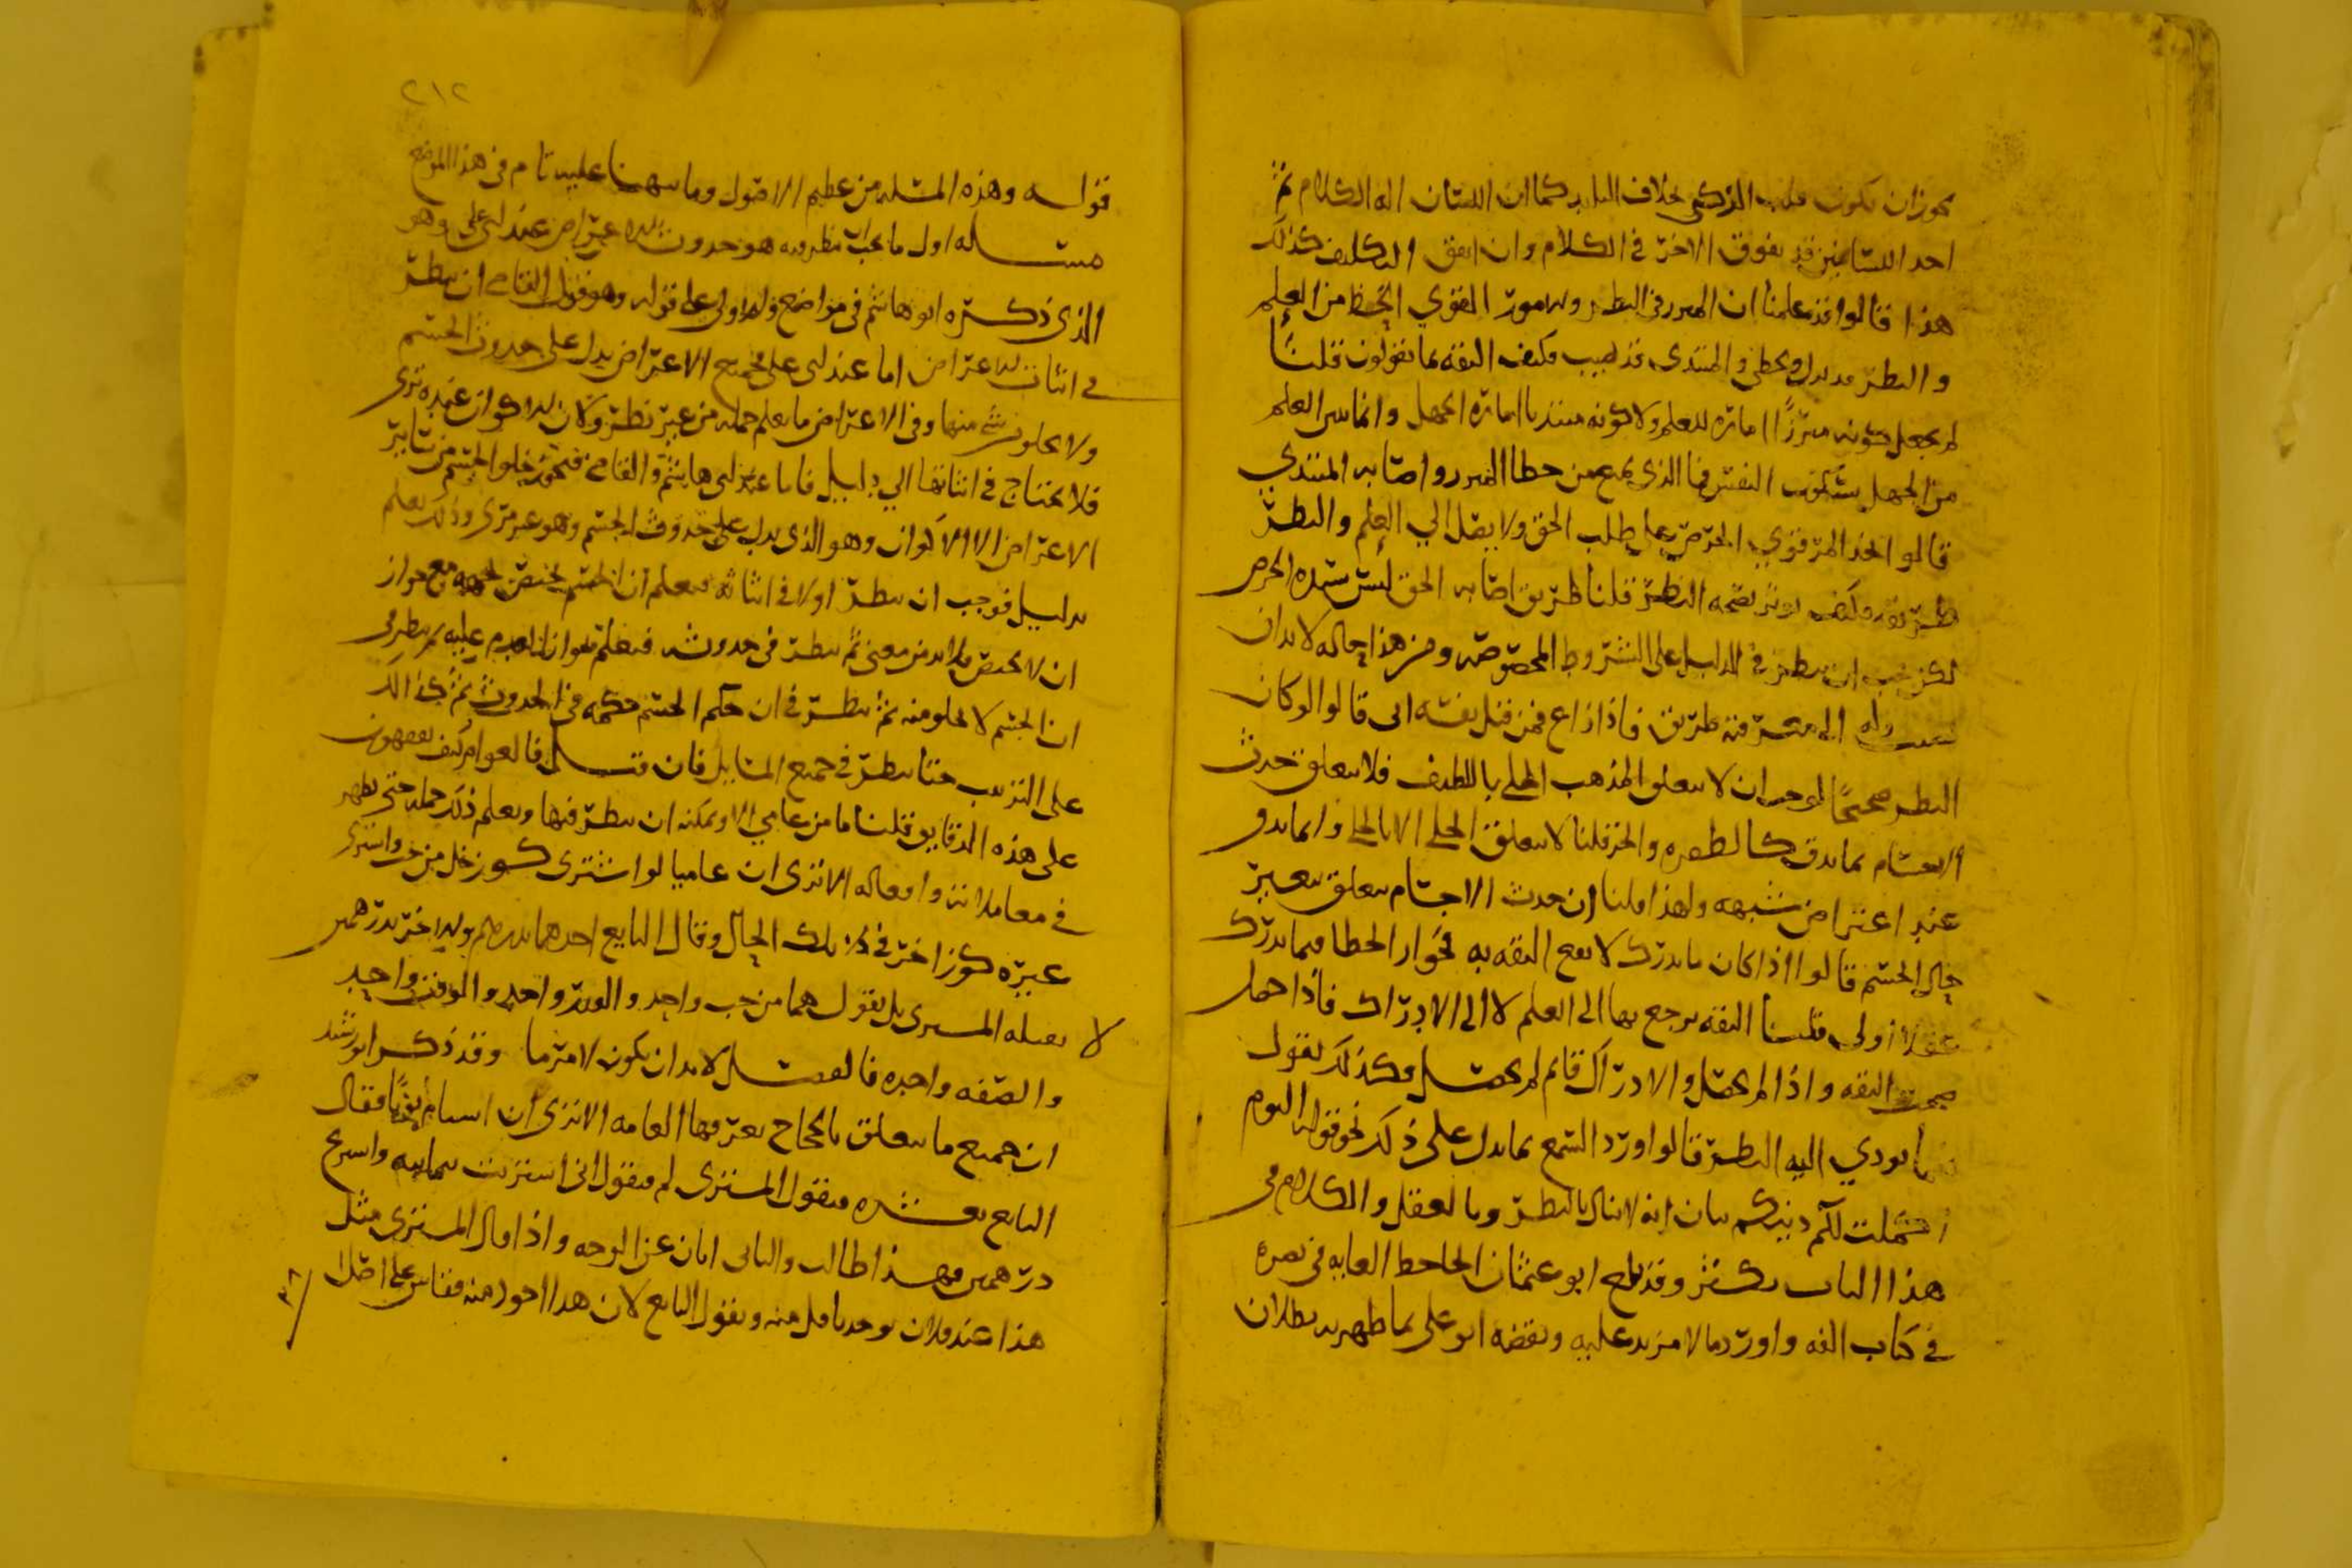 يجوز ان يكون قلب الذكي بخلاف البليد كما ان اللسان اله الكلام ثم
احد اللسانين قد يفوق الاخر في الكلام وان اتفق التكليف كذلك
هذا قالوا قد علمنا ان المبرز في النظر القوي الحظ من العلم
والنظر قد يزل ويخطي والمبتدي قد يصيب فكيف الثقه بما تقولون قلنا
لم نجعل كونه مبرزا اماره للعلم ولا كونه مبتديا اماره الجهل وانما العلم
من الجهل بسكون النفس فما الذي يمنع من خطا المبرز واصابه المبتدي
قالوا احد المر قوي الحرص على طلب الحق ولا يصل الي العلم والنظر
طريقه فكيف يوثق بصحه النظر قلنا طريق اصابه الحق ليس شده الحرص
لكن يجب ان ينظر في الدليل على الشروط المخصوصه ومن هذا حاله لا بد ان
الى معرفته طريق فاذا زاغ فمن قبل نفسه اتى قالوا لو كان
النظر صحيحا لوجب ان لا يتعلق المذهب الجلي باللطيف فلا يتعلق حدث
الاجسام بما يدق كالطفره والجز قلنا لا يتعلق الجلي الا بالجلي وانما يدق
عند اعتراض شبهه ولهذا قلنا ان حدث الاجسام يتعلق بتغير
حال الجسم قالوا اذا كان ما يدرك لا يقع الثقه به لجواز الخطا فيما يدرك
عقلا اولى قلنا الثقه يرجع بها الى العلم لا الى الادراك فاذا حصل
صحت الثقه واذا لم يحصل والادراك قائم لم يحصل وكذلك نقول
فيما يودي اليه النظر قالوا ورد السمع بما يدل على ذلك نحو قوله اليوم
اكملت لكم دينكم بيان انه لا ينال بالنظر وبالعقل والكلام في
هذا الباب يكثر وقد بلغ ابو عثمان الجاحظ الغايه في نصره
في كتاب الفه واورد ما لا مزيد عليه ونقضه ابو علي بما ظهر به بطلان
٢١٢
قوله وهذه المسله من عظيم الاصول وما نبهنا عليه تام في هذا الموضع
مسله اول ما يجب النظر فيه هو حدوث الاعراض عند ابي علي وهو
الذي ذكره ابو هاشم في مواضع وله اولى على قوله وهو قول القاضي ان ينظر
في اثبات الاعراض اما عند ابي علي فجميع الاعراض يدل على حدوث الجسم
ولا يخلو من شي منها وفي الاعراض ما يعلم جمله من غير نظر ولان الاكوان عنده ترى
فلا يحتاج في اثباتها الي دليل فاما عند ابي هاشم والقاضي فيجوز خلو الجسم من ساير
الاعراض الا الاكوان وهو الذي يدل على حدوث الجسم وهو غير مرى وذلك يعلم
بدليل فوجب ان ينظر اولا في اثباته فيعلم ان الجسم يختص بجهه مع جواز
ان لا يختص فلا بد من معنى ثم ينظر في حدوثه فيعلم بجواز العدم عليه ثم ينظر في
ان الجسم لا يخلو منه ثم ينظر في ان حكم الجسم حكمه في الحدوث ثم كذلك
على الترتيب حتى ينظر في جميع المسايل فان قيل فالعوام كيف يقفون
على هذه الدقايق قلنا ما من عامي الا ويمكنه ان ينظر فيها ويعلم ذلك جمله حتى يظهر
في معاملاته وافعاله الا ترى ان عاميا لو اشترى كوز خل من حب واشترى
غيره كوزا اخر في تلك الحال وقال البايع احدهما بدرهم والاخر بدرهمين
لا يقبله المشتري بل يقول هما من حب واحد والقدر واحد والوقت واحد
والصفه واحده فالفصل لا بد ان يكون لامر ما وقد ذكر ابو رشيد
ان جميع ما يتعلق بالحجاج يعرفها العامه الا ترى ان ثوبا فقال
البايع بعشره فيقول المشتري لم فيقول اني اشتريت بثمانيه واربح
درهمين فهذا طالب والثاني ابان عن الوجه واذا قال المشتري مثل
هذا عند فلان يوجد باقل منه ويقول البايع لان هذا اجود منه فقاس على اصل